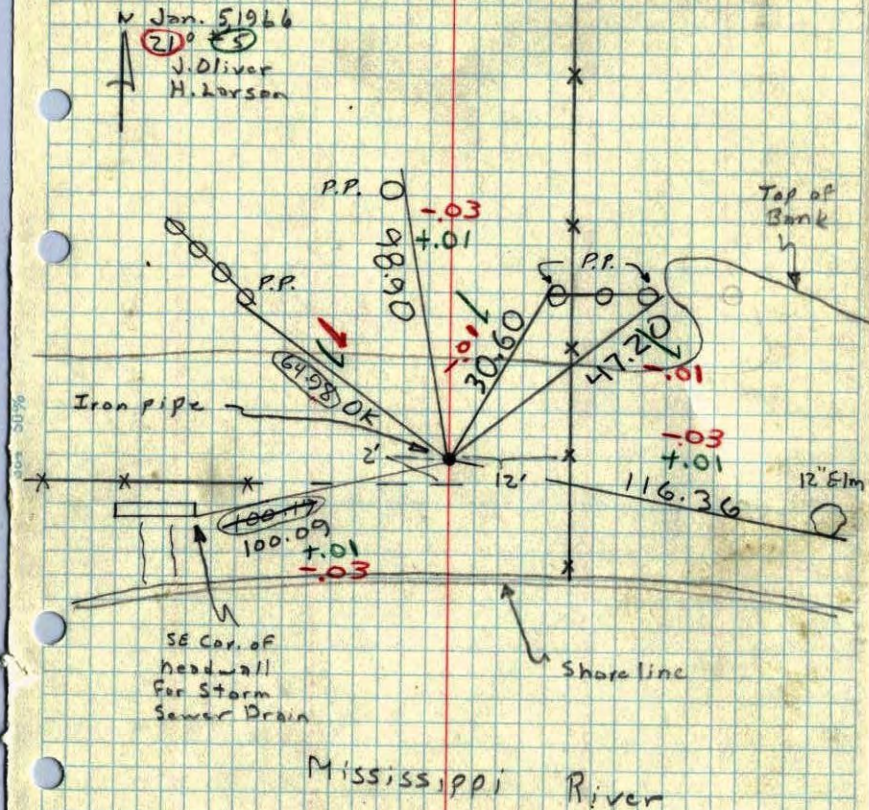 N Jan. 5, 1966
21° +5
J. Oliver
H. Larson
P.P.
-.03
+.01
98.90
Top of
Bank
P.P.
P.P.
-.01
30.60
47.20
-.01
64.98 OK
Iron pipe
2'
12'
-.03
+.01
116.36
12" Elm
100.17
100.09
+.01
-.03
SE Cor. of
headwall
For Storm
Sewer Drain
Shoreline
Mississippi River